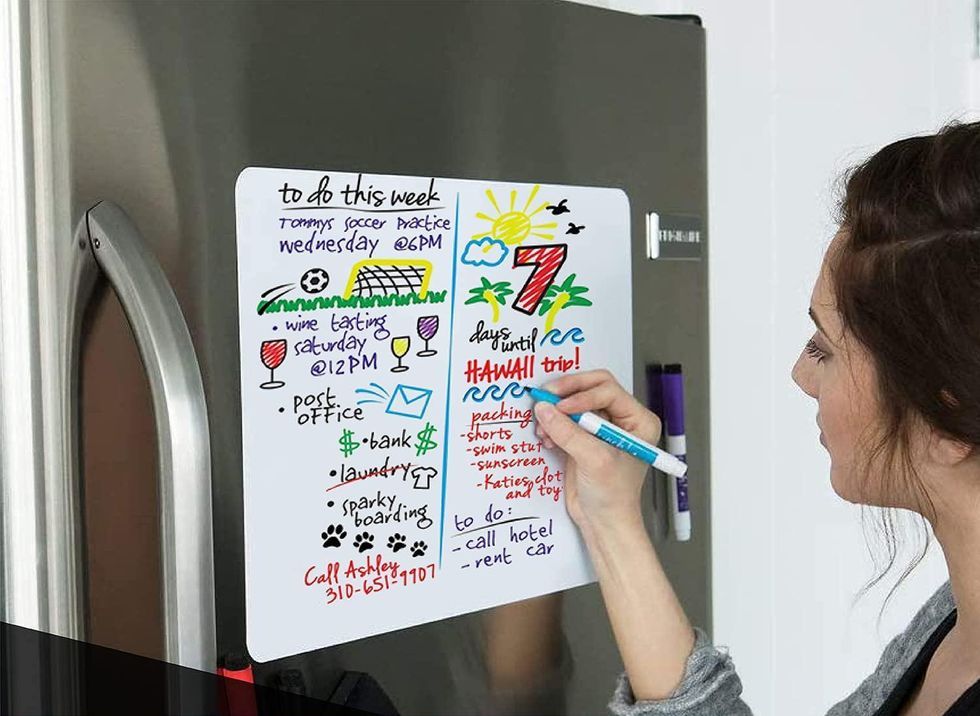 to do this week
Tommys soccer practice
wednesday @6PM
• wine tasting
saturday
@12PM
• post
office
$ • bank $
• laundry
• sparky
boarding
Call Ashley
310-651-9907
7
days
until
HAWAII trip!
packing
-shorts
-swim stuf
-sunscreen
-Katies clot
and toy
to do:
- call hotel
- rent car
FRIGIDAIRE